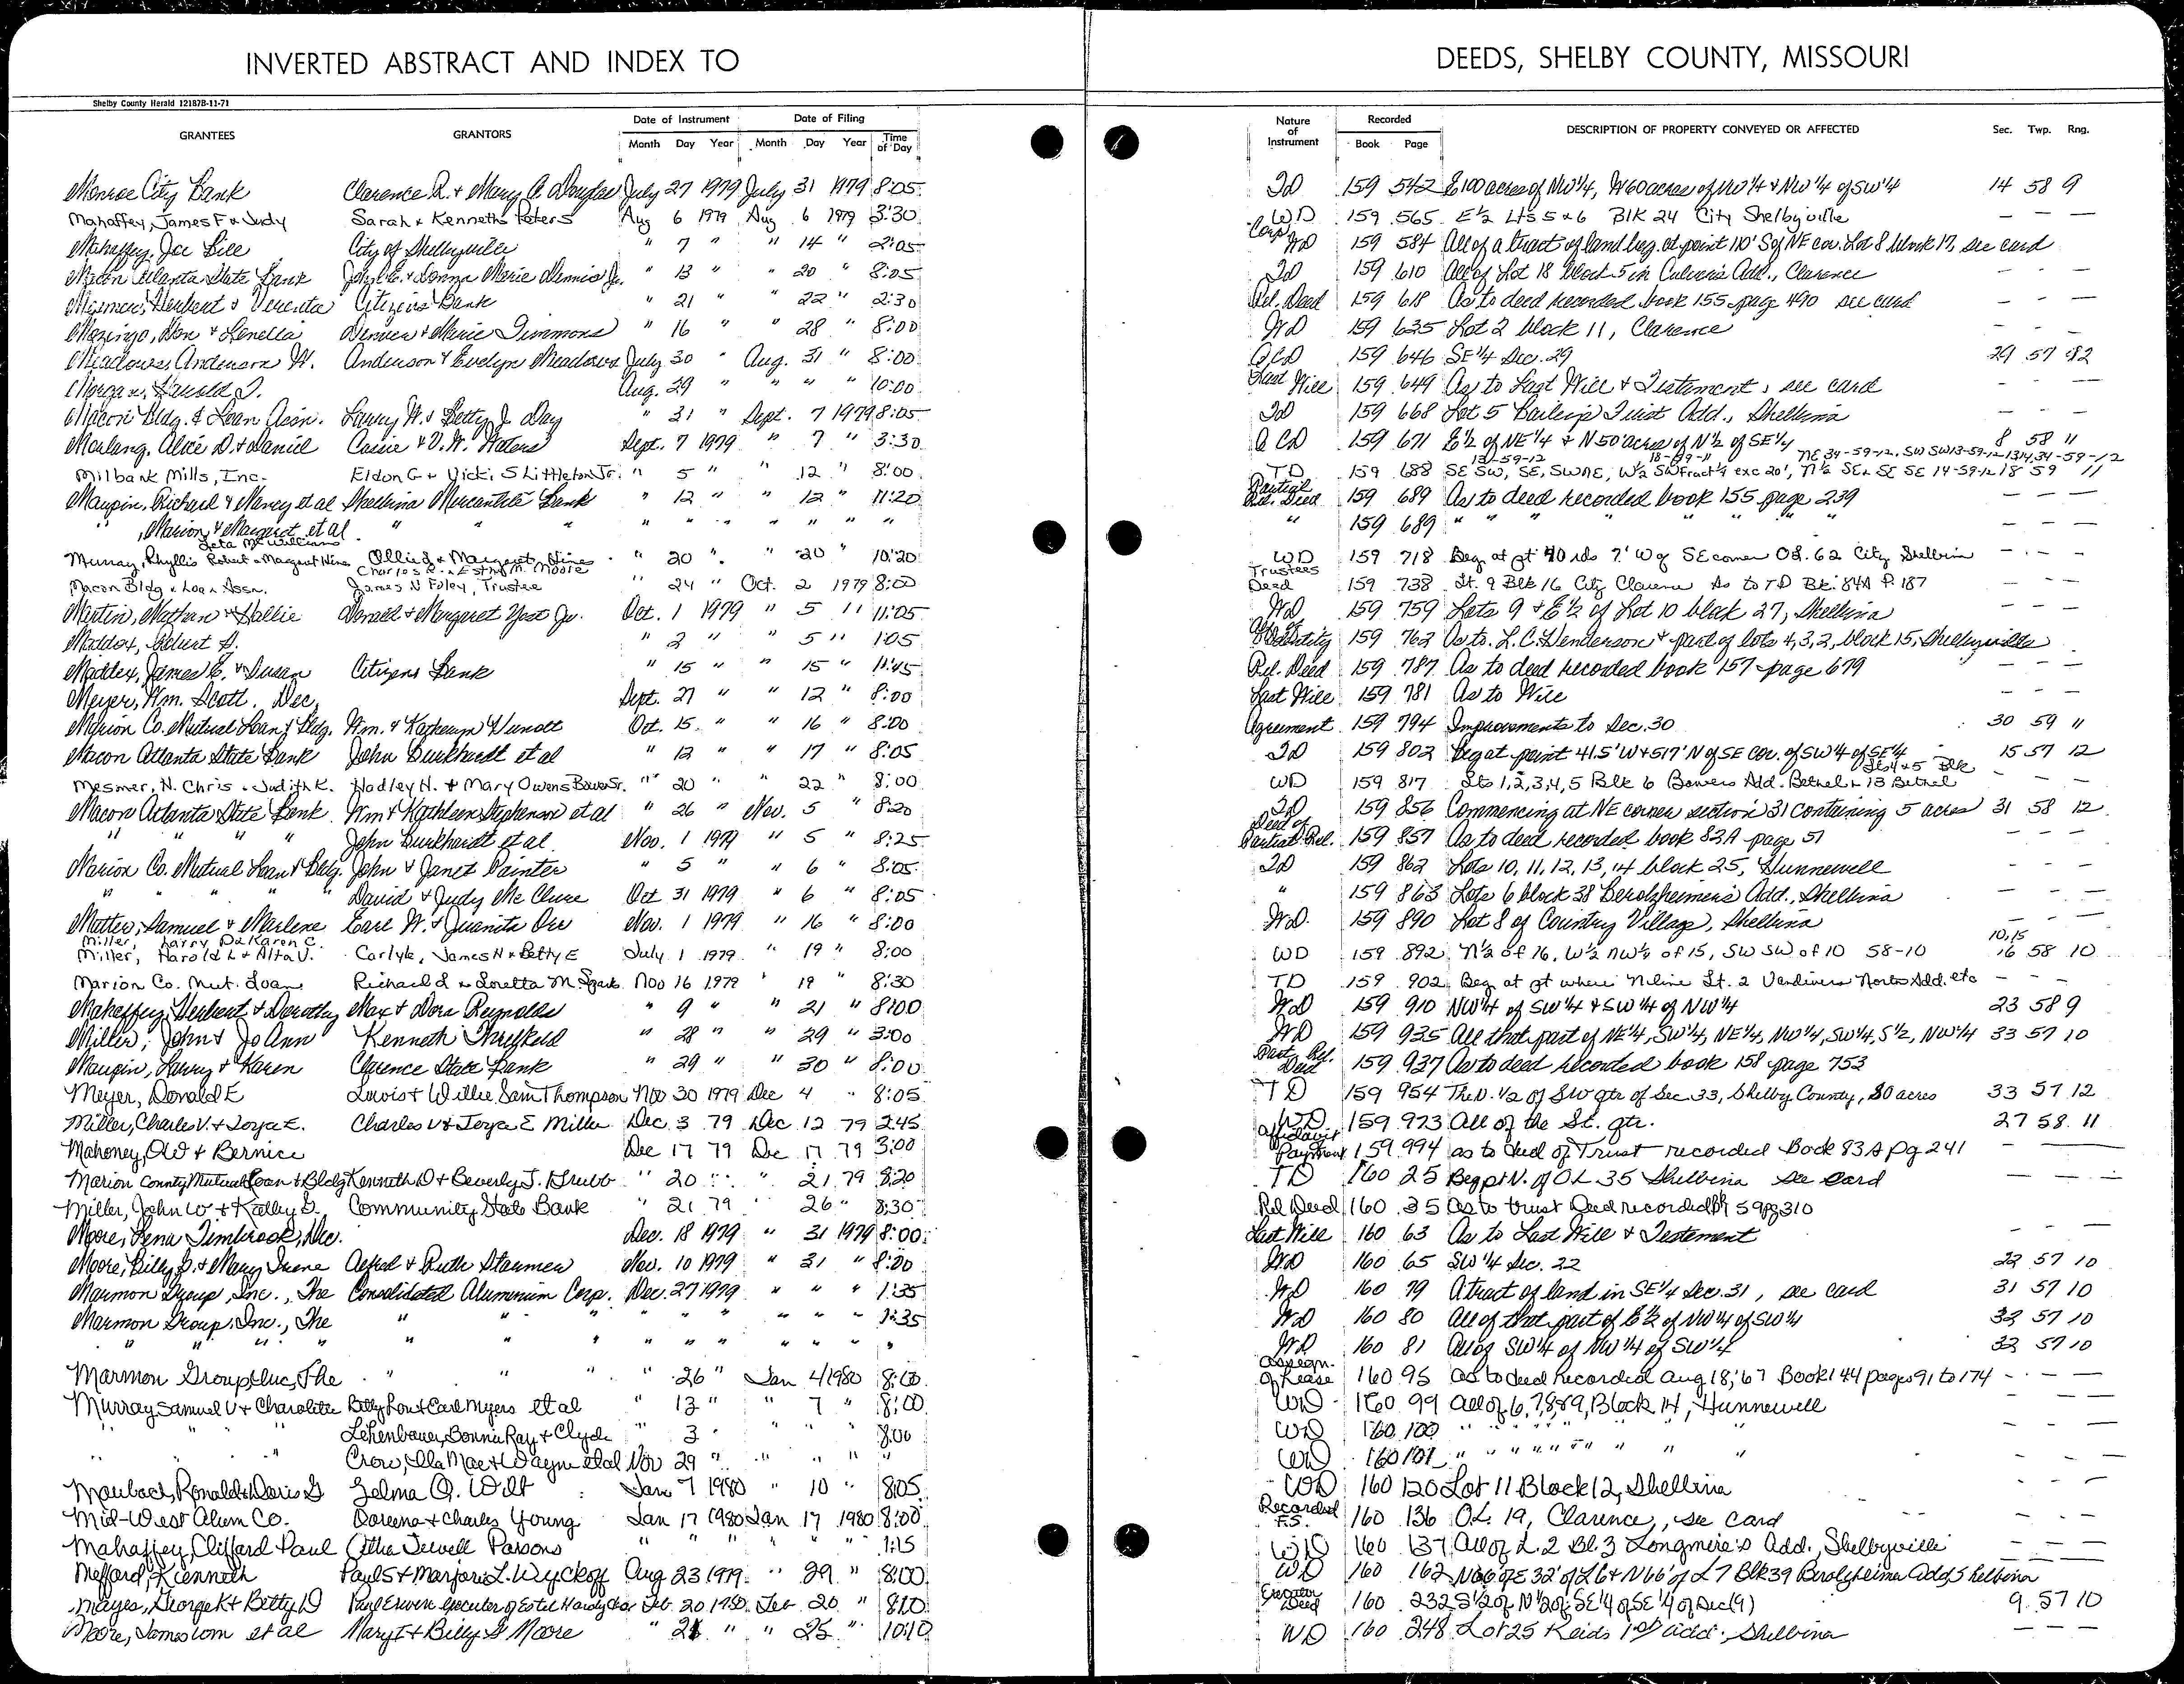 INVERTED ABSTRACT AND INDEX TO
DEEDS, SHELBY COUNTY, MISSOURI
Shelby County Herald 12187B-11-71
GRANTEES GRANTORS Date of Instrument Month Day Year Date of Filing Month Day Year Time of Day Nature of Instrument Recorded Book Page DESCRIPTION OF PROPERTY CONVEYED OR AFFECTED Sec. Twp. Rng.
Monroe City Bank Clarence R. & Mary A. Douglas July 27 1979 July 31 1979 8:05 TD 159 542 E 100 acres of NW 1/4, W 60 acres of NW 1/4 & NW 1/4 of SW 1/4 14 58 9
Mahaffey, James F & Judy Sarah & Kenneth Peters Aug 6 1979 Aug 6 1979 3:30 WD 159 565 E 1/2 Lts 5 & 6 Blk 24 City Shelbyville — — —
Mahaffey, Joe Bill City of Shelbyville " 7 " " 14 " 2:05 Corp WD 159 584 All of a tract of land beg. at point 110' S of NE cor. Lot 8 block 17, see card
Macon Atlanta State Bank John E. & Donna Marie Dennis Jr. " 13 " " 20 " 8:05 TD 159 610 All of Lot 18 block 5 in Culver's Add., Clarence — — —
Herbert & Citizens Bank " 21 " " 22 " 2:30 Rel. Deed 159 618 As to deed recorded book 155 page 490 see card — — —
Mozingo, Don & Lenella Denver & Marie Timmons " 16 " " 28 " 8:00 WD 159 635 Lot 2 block 11, Clarence — — —
Meadows, Anderson W. Anderson & Evelyn Meadows July 30 " Aug. 31 " 8:00 QCD 159 646 SE 1/4 Sec. 29 29 57 12
Morgan, Aug. 29 " " " " 10:00 Last Will 159 649 As to Last Will & Testament, see card — — —
Macon Bldg. & Loan Assn. Larry W. & Betty J. Day " 31 " Sept. 7 1979 8:05 TD 159 668 Lot 5 Trust Add., Shelbina — — —
Alice D. & Daniel Cassie & V.W. Waters Sept. 7 1979 " 7 " 3:30 QCD 159 671 E 1/2 of NE 1/4 & N 50 acres of N 1/2 of SE 1/4 8 58 11
13-59-12 18-59-11 NE 34-59-12, SW SW 13-59-12 13,14,34-59-12
Milbank Mills, Inc. Eldon G & Vicki S Littleton Jr. " 5 " " 12 " 8:00 TD 159 688 SE SW, SE, SWNE, W 1/2 SW Fract 1/4 exc 20', N 1/2 SE & SE SE 14-59-12 18 59 11
Maupin, Richard & Nancy et al Shelbina Mercantile Bank " 12 " " 12 " 11:20 Partial Rel. Deed 159 689 As to deed recorded book 155 page 239 — — —
" , Marion & Margaret et al " " " " " " " " " " 159 689 " " " " " " " — — —
Leta McWilliams
Murray, Phyllis Robert & Margaret Hines Ollie J & Margaret Hines " 20 " " 20 " 10:20 WD 159 718 Beg at pt 40 rds 7' W of SE corner OL 62 City Shelbina — — —
Charles R. & Esther M. Moore
Macon Bldg & Loan Assn. James N Foley, Trustee " 24 " Oct. 2 1979 8:00 Trustees Deed 159 738 Lt. 9 Blk 16 City Clarence As to TD Bk. 84A P. 187 — — —
Martin, Nathan & Hallie Donald & Margaret Yost Jr. Oct. 1 1979 " 5 " 11:05 WD 159 759 Lots 9 & E 1/2 of Lot 10 block 27, Shelbina — — —
Maddox, " 2 " " 5 " 1:05 Aff. of Identity 159 762 As to L.C. Henderson & part of lots 4,3,2, block 15, Shelbyville — — —
Maddox, James E. & Susan Citizens Bank " 15 " " 15 " 11:45 Rel. Deed 159 787 As to deed recorded book 157 page 679 — — —
Meyer, Wm. Scott, Dec. Sept. 27 " " 12 " 8:00 Last Will 159 781 As to Will — — —
Marion Co. Mutual Loan & Bldg. Wm. & Katheryn Oct. 15 " " 16 " 8:00 Agreement 159 794 Improvements to Sec. 30 30 59 11
Macon Atlanta State Bank John Burkhardt et al " 12 " " 17 " 8:05 TD 159 802 Beg at point 41.5' W & 517' N of SE cor. of SW 1/4 of SE 1/4 15 57 12
Mesmer, H. Chris & Judith K. Hadley H. & Mary Owens Bowen Sr. " 20 " " 22 " 8:00 WD 159 817 Lts 1,2,3,4,5 Blk 6 Bowers Add. Bethel & Lts 4 & 5 Blk 13 Bethel — — —
Macon Atlanta State Bank Wm & Kathleen Stephenson et al " 26 " Nov. 5 " 8:20 TD 159 856 Commencing at NE corner section 31 containing 5 acres 31 58 12
" " " " John Burkhardt et al Nov. 1 1979 " 5 " 8:25 Deed of Partial Rel. 159 857 As to deed recorded book 83A page 51 — — —
Marion Co. Mutual Loan & Bldg. John & Janet Painter " 5 " " 6 " 8:05 TD 159 862 Lots 10, 11, 12, 13, 14 block 25, Hunnewell — — —
" " " " David & Judy McClure Oct 31 1979 " 6 " 8:05 " 159 863 Lots 6 block 38 Berolzheimer's Add., Shelbina — — —
Matter, Samuel & Marlene Earl W. & Juanita Orr Nov. 1 1979 " 16 " 8:00 WD 159 890 Lot 8 of Country Village, Shelbina — — —
Miller, Larry D & Karen C. 10,15
Miller, Harold L & Alta V. Carlyle, James H & Betty E July 1 1979 " 19 " 8:00 WD 159 892 N 1/2 of 16, W 1/2 NW 1/4 of 15, SW SW of 10 58-10 16 58 10
Marion Co. Mut. Loan Richard L & Loretta M. Spark Nov 16 1979 " 19 " 8:30 TD 159 902 Beg at pt where N line Lt. 2 Vandivers North Add. etc — — —
Mahaffey, Herbert & Dorothy Max & Dora Reynolds " 9 " " 21 " 8:00 WD 159 910 NW 1/4 of SW 1/4 & SW 1/4 of NW 1/4 23 58 9
Miller, John & Jo Ann Kenneth Threlkeld " 28 " " 29 " 3:00 WD 159 935 All that part of NE 1/4, SW 1/4, NE 1/4, NW 1/4, SW 1/4, S 1/2, NW 1/4 33 57 10
Maupin, Larry & Karen Clarence State Bank " 29 " " 30 " 8:00 Part. Rel. Deed 159 937 As to deed recorded book 158 page 753
Meyer, Donald E Lewis & Willie Sam Thompson Nov 30 1979 Dec 4 " 8:05 TD 159 954 The N. 1/2 of SW qtr of Sec 33, Shelby County, 80 acres 33 57 12
Miller, Charles V. & Toya E. Charles V & Toya E Miller Dec 3 79 Dec 12 79 2:45 WD 159 973 All of the SE. qtr. 27 58 11
Mahoney, OW & Bernice Dec 17 79 Dec 17 79 3:00 Affidavit Payment 159 994 as to deed of Trust recorded Book 83A pg 241 — — —
Marion County Mutual Loan & Bldg Kenneth D & Beverly J. Grubb " 20 " " 21 79 8:20 TD 160 25 Beg pt N. of OL 35 Shelbina see card — — —
Miller, John W & Kathy G. Community State Bank " 21 79 " 26 " 8:30 Rel Deed 160 35 As to trust Deed recorded 159 pg 310
Moore, Lena Timbrook, Dec. Dec. 18 1979 " 31 1979 8:00 Last Will 160 63 As to Last Will & Testament — — —
Moore, Billy G. & Mary Irene Alfred & Ruth Nov. 10 1979 " 31 " 8:00 WD 160 65 SW 1/4 Sec. 22 22 57 10
Marmon Group, Inc., The Consolidated Aluminium Corp. Dec. 27 1979 " " " 1:35 WD 160 79 A tract of land in SE 1/4 Sec. 31, see card 31 57 10
Marmon Group, Inc., The " " " " " " " " " 1:35 WD 160 80 All of that part of E 1/2 of NW 1/4 of SW 1/4 32 57 10
" " " " " " " " " " " " " WD 160 81 All of SW 1/4 of NW 1/4 of SW 1/4 32 57 10
Marmon Group Inc, The " " " " 26 " Jan 4 1980 8:00 Assegn. Of Lease 160 95 as to deed recorded Aug 18, '67 Book 144 pages 91 to 174 — — —
Murray Samuel V & Charolitte Betty Lou & Carl Myers et al " 13 " " 7 " 8:00 WD 160 99 All of 6,7,8,&9, Block 14, Hunnewell — — —
Lehenbauer, Bonnie Ray & Clyde " 3 " " " " 8:00 WD 160 100 " " " " " " — — —
" " Crow, Ila Mae & Wayne et al Nov 29 " " " " " WD 160 101 " " " " " " — — —
Maubach, Ronald & Doris G Zelma O. Wilt Jan 7 1980 " 10 " 8:05 WD 160 120 Lot 11 Block 12, Shelbina — — —
Mid-West Alum Co. Doreena & Charles Young Jan 17 1980 Jan 17 1980 8:00 Recorded F.S. 160 136 O.L. 19, Clarence, see card — — —
Mahaffey, Clifford Paul Otha Jewell Parsons " " " " " " 1:15 WD 160 137 All of L. 2 Bl. 3 Longmire's Add., Shelbyville — — —
Mefford, Kenneth Paul S & Marjorie L. Wyckoff Aug 23 1979 " 29 " 8:00 WD 160 162 N 66' of E 32' of L 6 & N 66' of L 7 Blk 39 Berolzheimer Add Shelbina
Mayes, George K & Betty D Paul Erwin Executer of Estel Feb. 20 1980 Feb 20 " 8:10 Executor Deed 160 232 S 1/2 of N 1/2 of SE 1/4 of SE 1/4 of Sec (9) 9 57 10
Moore, James Tom et al Mary I & Billy G Moore " 21 " " 25 " 10:10 WD 160 248 Lot 25 Reids 1st add. Shelbina — — —